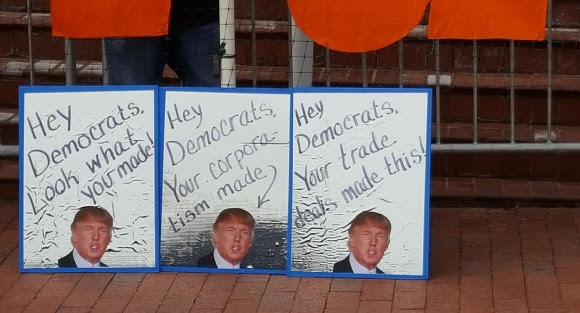 Hey
Democrats,
Look what
you made!
Hey
Democrats,
Your corpora-
tism made
Hey
Democrats,
Your trade
deals made this!